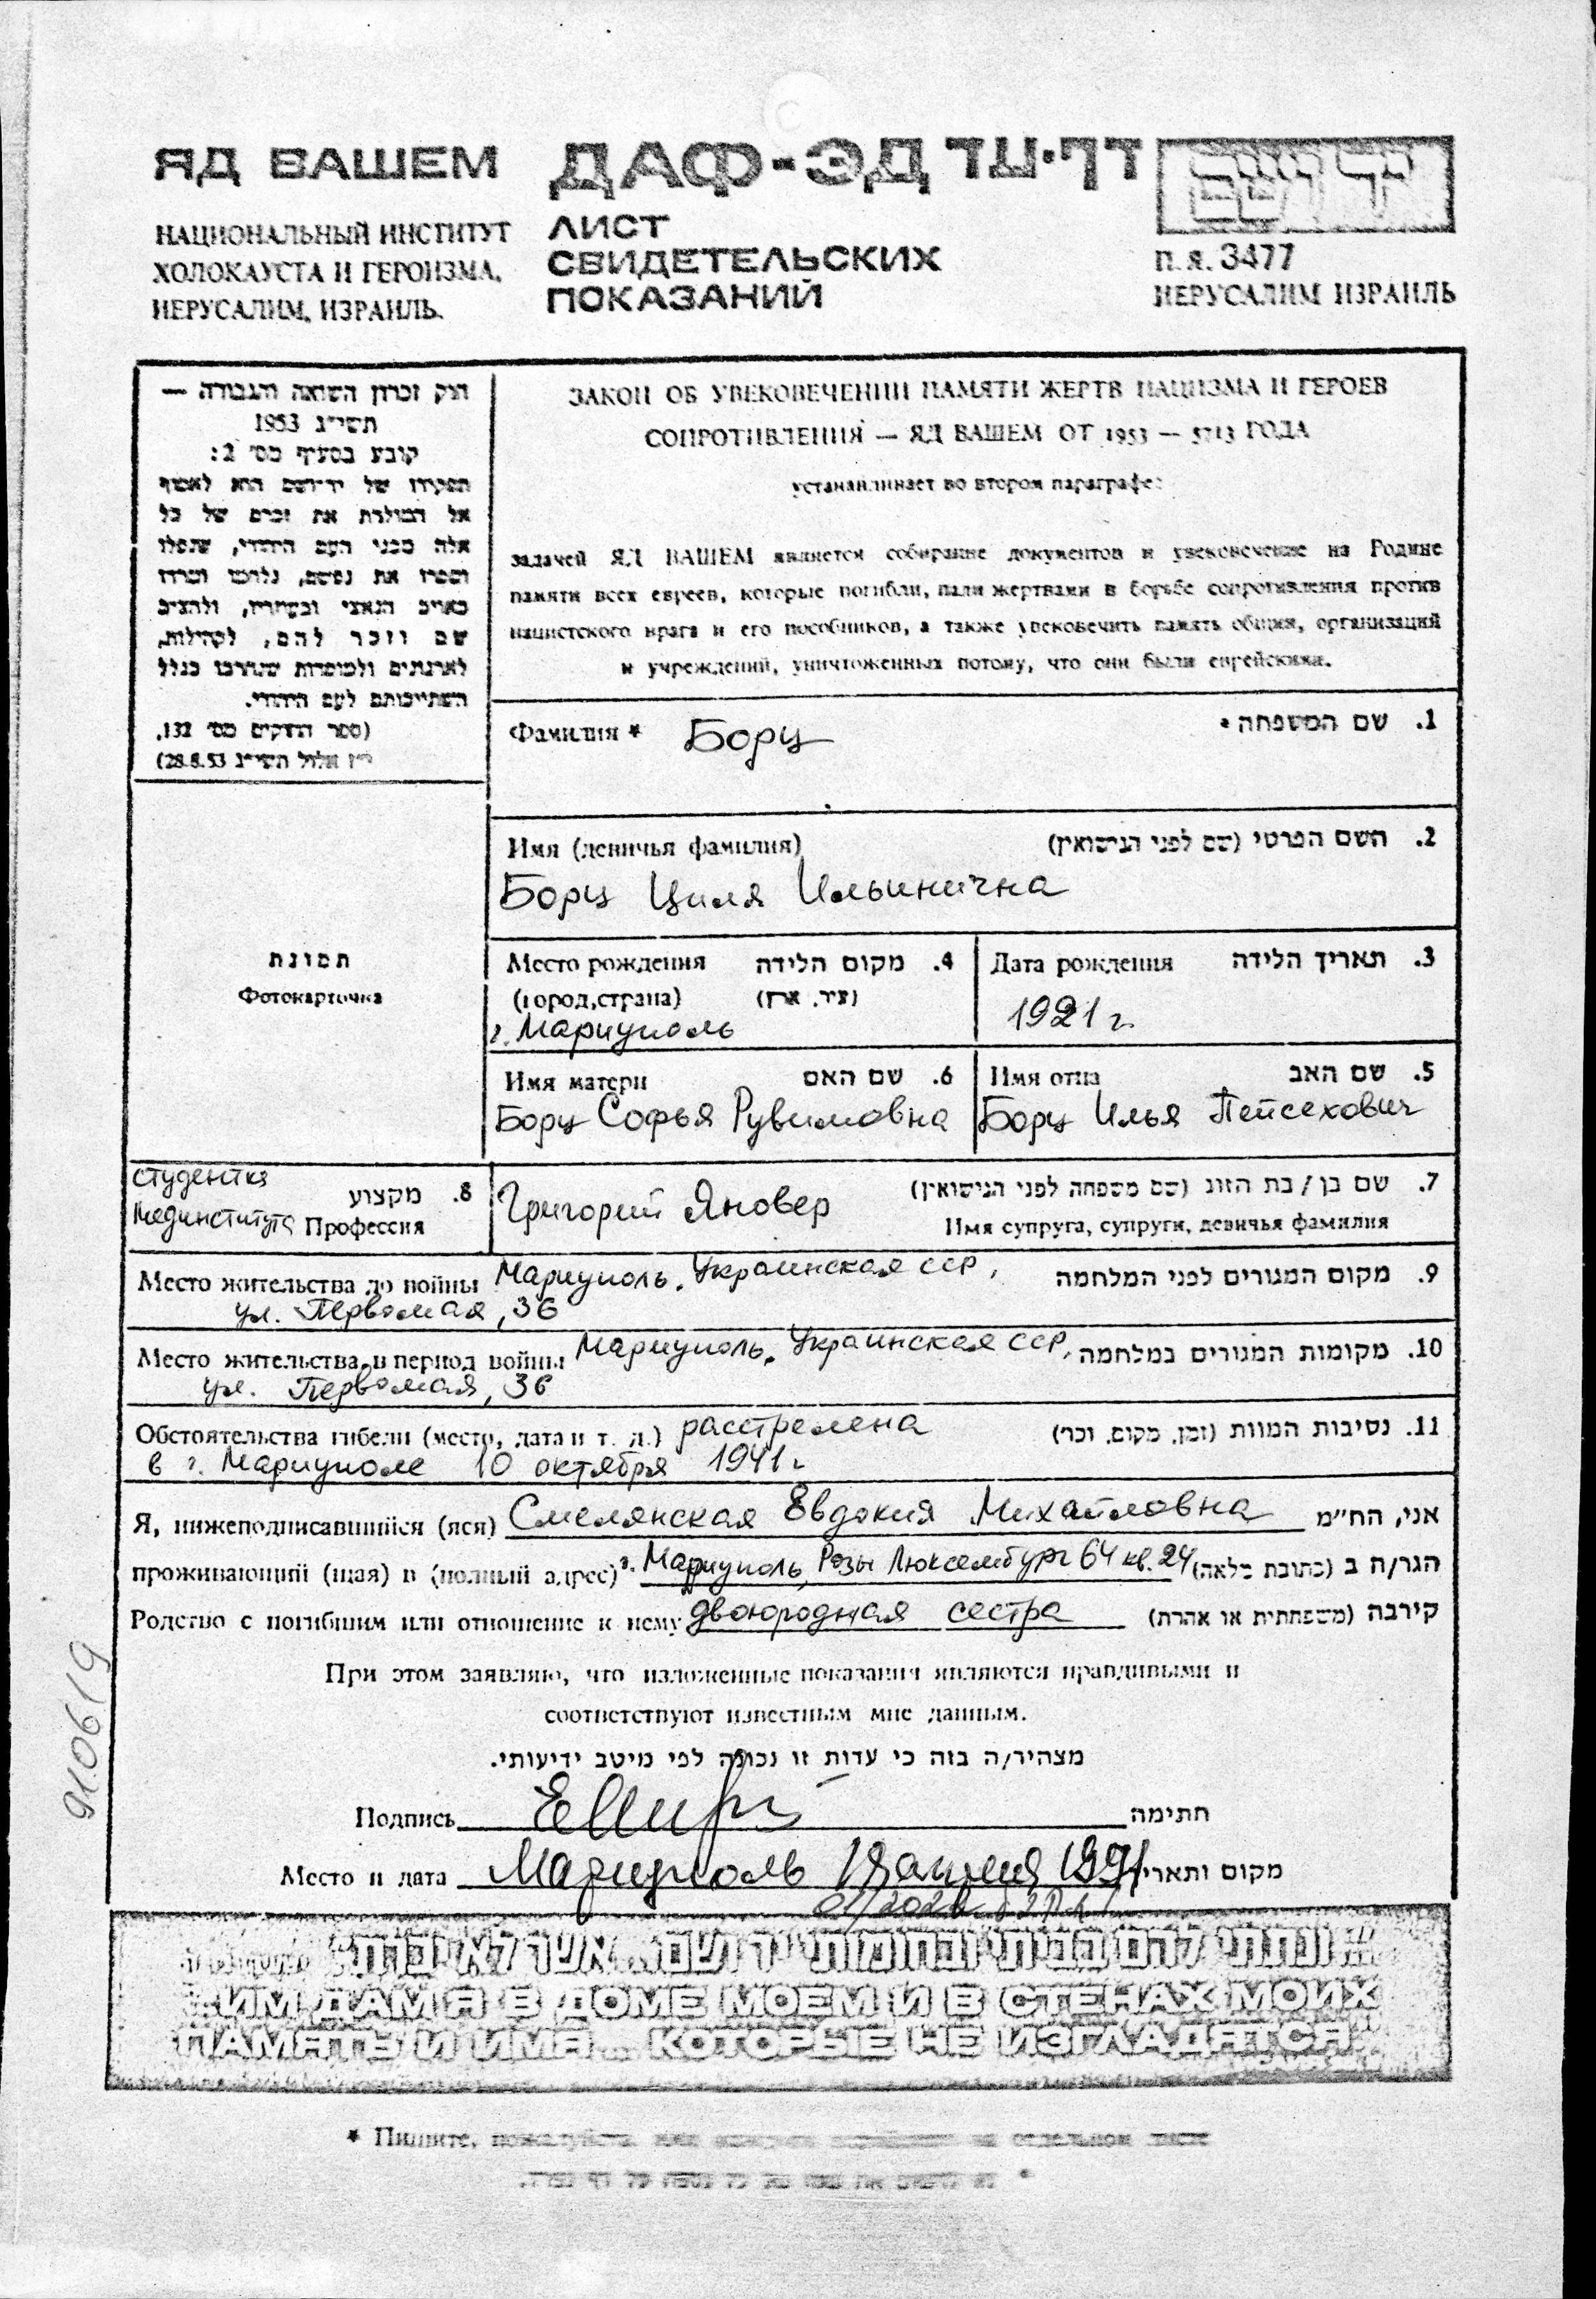 ЯД ВАШЕМ
НАЦИОНАЛЬНЫЙ ИНСТИТУТ
ХОЛОКАУСТА И ГЕРОИЗМА,
ИЕРУСАЛИМ, ИЗРАИЛЬ.
ДАФ-ЭД דף-עד
ЛИСТ
СВИДЕТЕЛЬСКИХ
ПОКАЗАНИЙ
יד ושם
П.Я. 3477
ИЕРУСАЛИМ ИЗРАИЛЬ
חוק זכרון השואה והגבורה —
תשי״ג 1953
קובע בסעיף מס׳ 2:
תפקידו של יד־ושם הוא לאסוף
אל המולדת את זכרם של כל
אלה מבני העם היהודי, שנפלו
ומסרו את נפשם, נלחמו ומרדו
באויב הנאצי ובעוזריו, ולהציב
שם וזכר להם, לקהילות,
לארגונים ולמוסדות שנחרבו בגלל
השתייכותם לעם היהודי.
(ספר החוקים מס׳ 132,
י״ז אלול תשי״ג 28.8.53)
ЗАКОН ОБ УВЕКОВЕЧЕНИИ ПАМЯТИ ЖЕРТВ НАЦИЗМА И ГЕРОЕВ
СОПРОТИВЛЕНИЯ — ЯД ВАШЕМ ОТ 1953 — 5713 ГОДА
устанавливает во втором параграфе:
задачей ЯД ВАШЕМ является собирание документов и увековечение на Родине
памяти всех евреев, которые погибли, пали жертвами в борьбе сопротивления против
нацистского врага и его пособников, а также увековечить память общин, организаций
и учреждений, уничтоженных потому, что они были еврейскими.
Фамилия * Борц 1. שם המשפחה *
Имя (девичья фамилия) 2. השם הפרטי (שם לפני הנישואין)
Борц Циля Ильинична
תמונת
Фотокарточка
Место рождения 4. מקום הלידה
(город,страна) (עיר, ארץ)
г. Мариуполь
Дата рождения 3. תאריך הלידה
1921 г.
Имя матери 6. שם האם
Борц Софья Рувимовна
Имя отца 5. שם האב
Борц Илья Пейсехович
студентка
мединститута
8. מקצוע
Профессия
Григорий Яновер
7. שם בן/בת הזוג (שם משפחה לפני הנישואין)
Имя супруга, супруги, девичья фамилия
Место жительства до войны Мариуполь, Украинская ССР, 9. מקום המגורים לפני המלחמה
ул. Первомая, 36
Место жительства в период войны Мариуполь, Украинская ССР, 10. מקומות המגורים במלחמה
ул. Первомая, 36
Обстоятельства гибели (место, дата и т. д.) расстрелена 11. נסיבות המוות (זמן, מקום, וכו׳)
в г. Мариуполе 10 октября 1941 г
Я, нижеподписавшийся (яся) Смелянская Евдокия Михайловна אני, הח״מ
проживающий (щая) в (полный адрес) г. Мариуполь, Розы Люксембург 64 кв. 24 הגר/ה ב (כתובת מלאה)
Родство с погибшим или отношение к нему двоюродная сестра קירבה (משפחתית או אחרת)
При этом заявляю, что изложенные показания являются правдивыми и
соответствуют известным мне данным.
מצהיר/ה בזה כי עדות זו נכונה לפי מיטב ידיעותי.
Подпись חתימה
Место и дата Мариуполь 1991 מקום ותאריך
910619
״...ונתתי להם בביתי ובחומותי יד ושם... אשר לא יכרת״
„...ИМ ДАМ Я В ДОМЕ МОЕМ И В СТЕНАХ МОИХ
ПАМЯТЬ И ИМЯ... КОТОРЫЕ НЕ ИЗГЛАДЯТСЯ"
* Пишите, пожалуйста, на отдельном листе